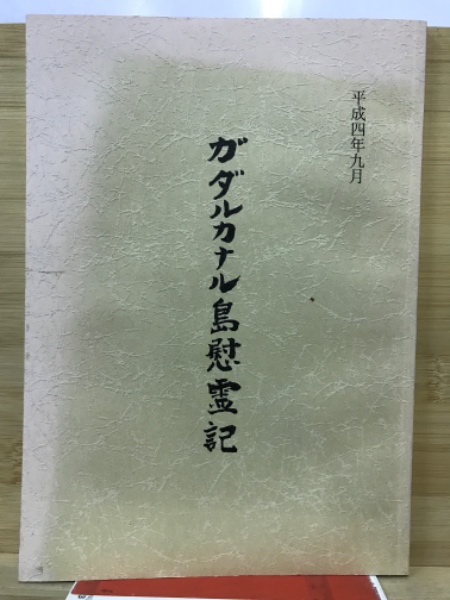 平成四年九月
ガダルカナル島慰霊記